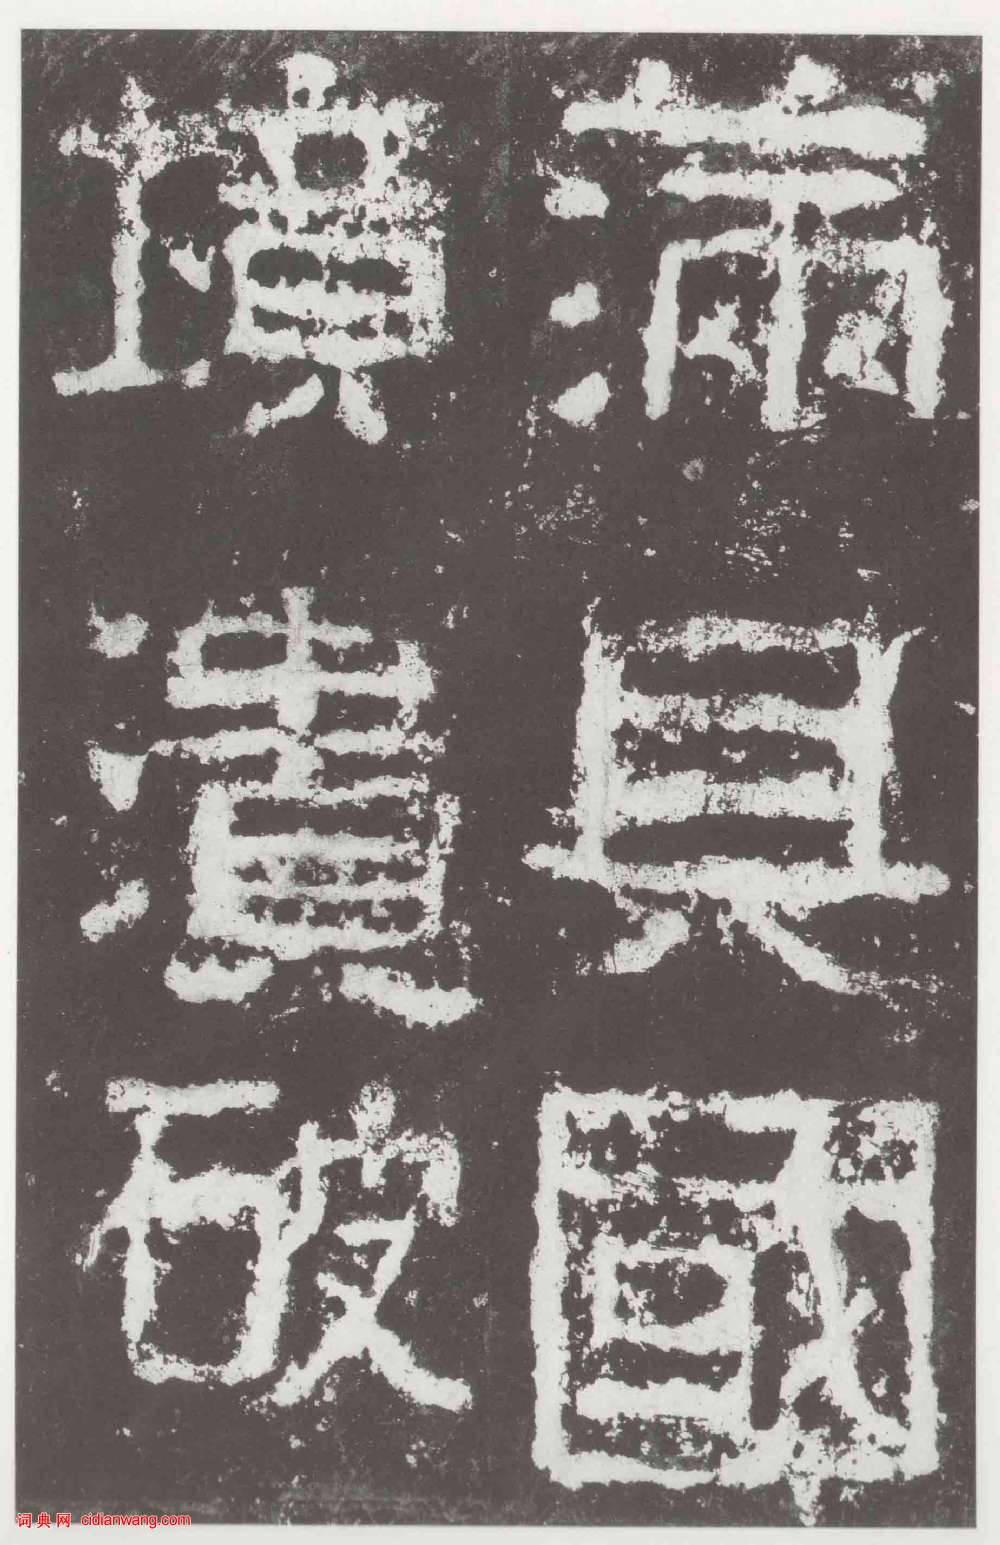 滿具國
填潰破
词典网 cidianwang.com